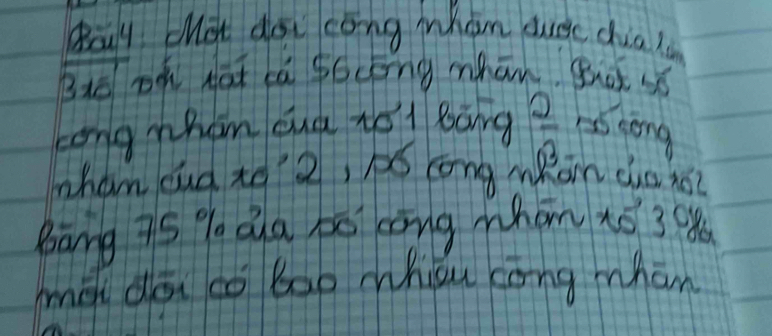 Bài 4: Một đội công nhân được chia làm
3 tổ với tất cả 56 công nhân. Biết số
công nhân của tổ 1 bằng 2/3 số công
nhân của tổ 2, số công nhân của tổ 2
bằng 75% của số công nhân tổ 3. Hỏi
mỗi đội có bao nhiêu công nhân